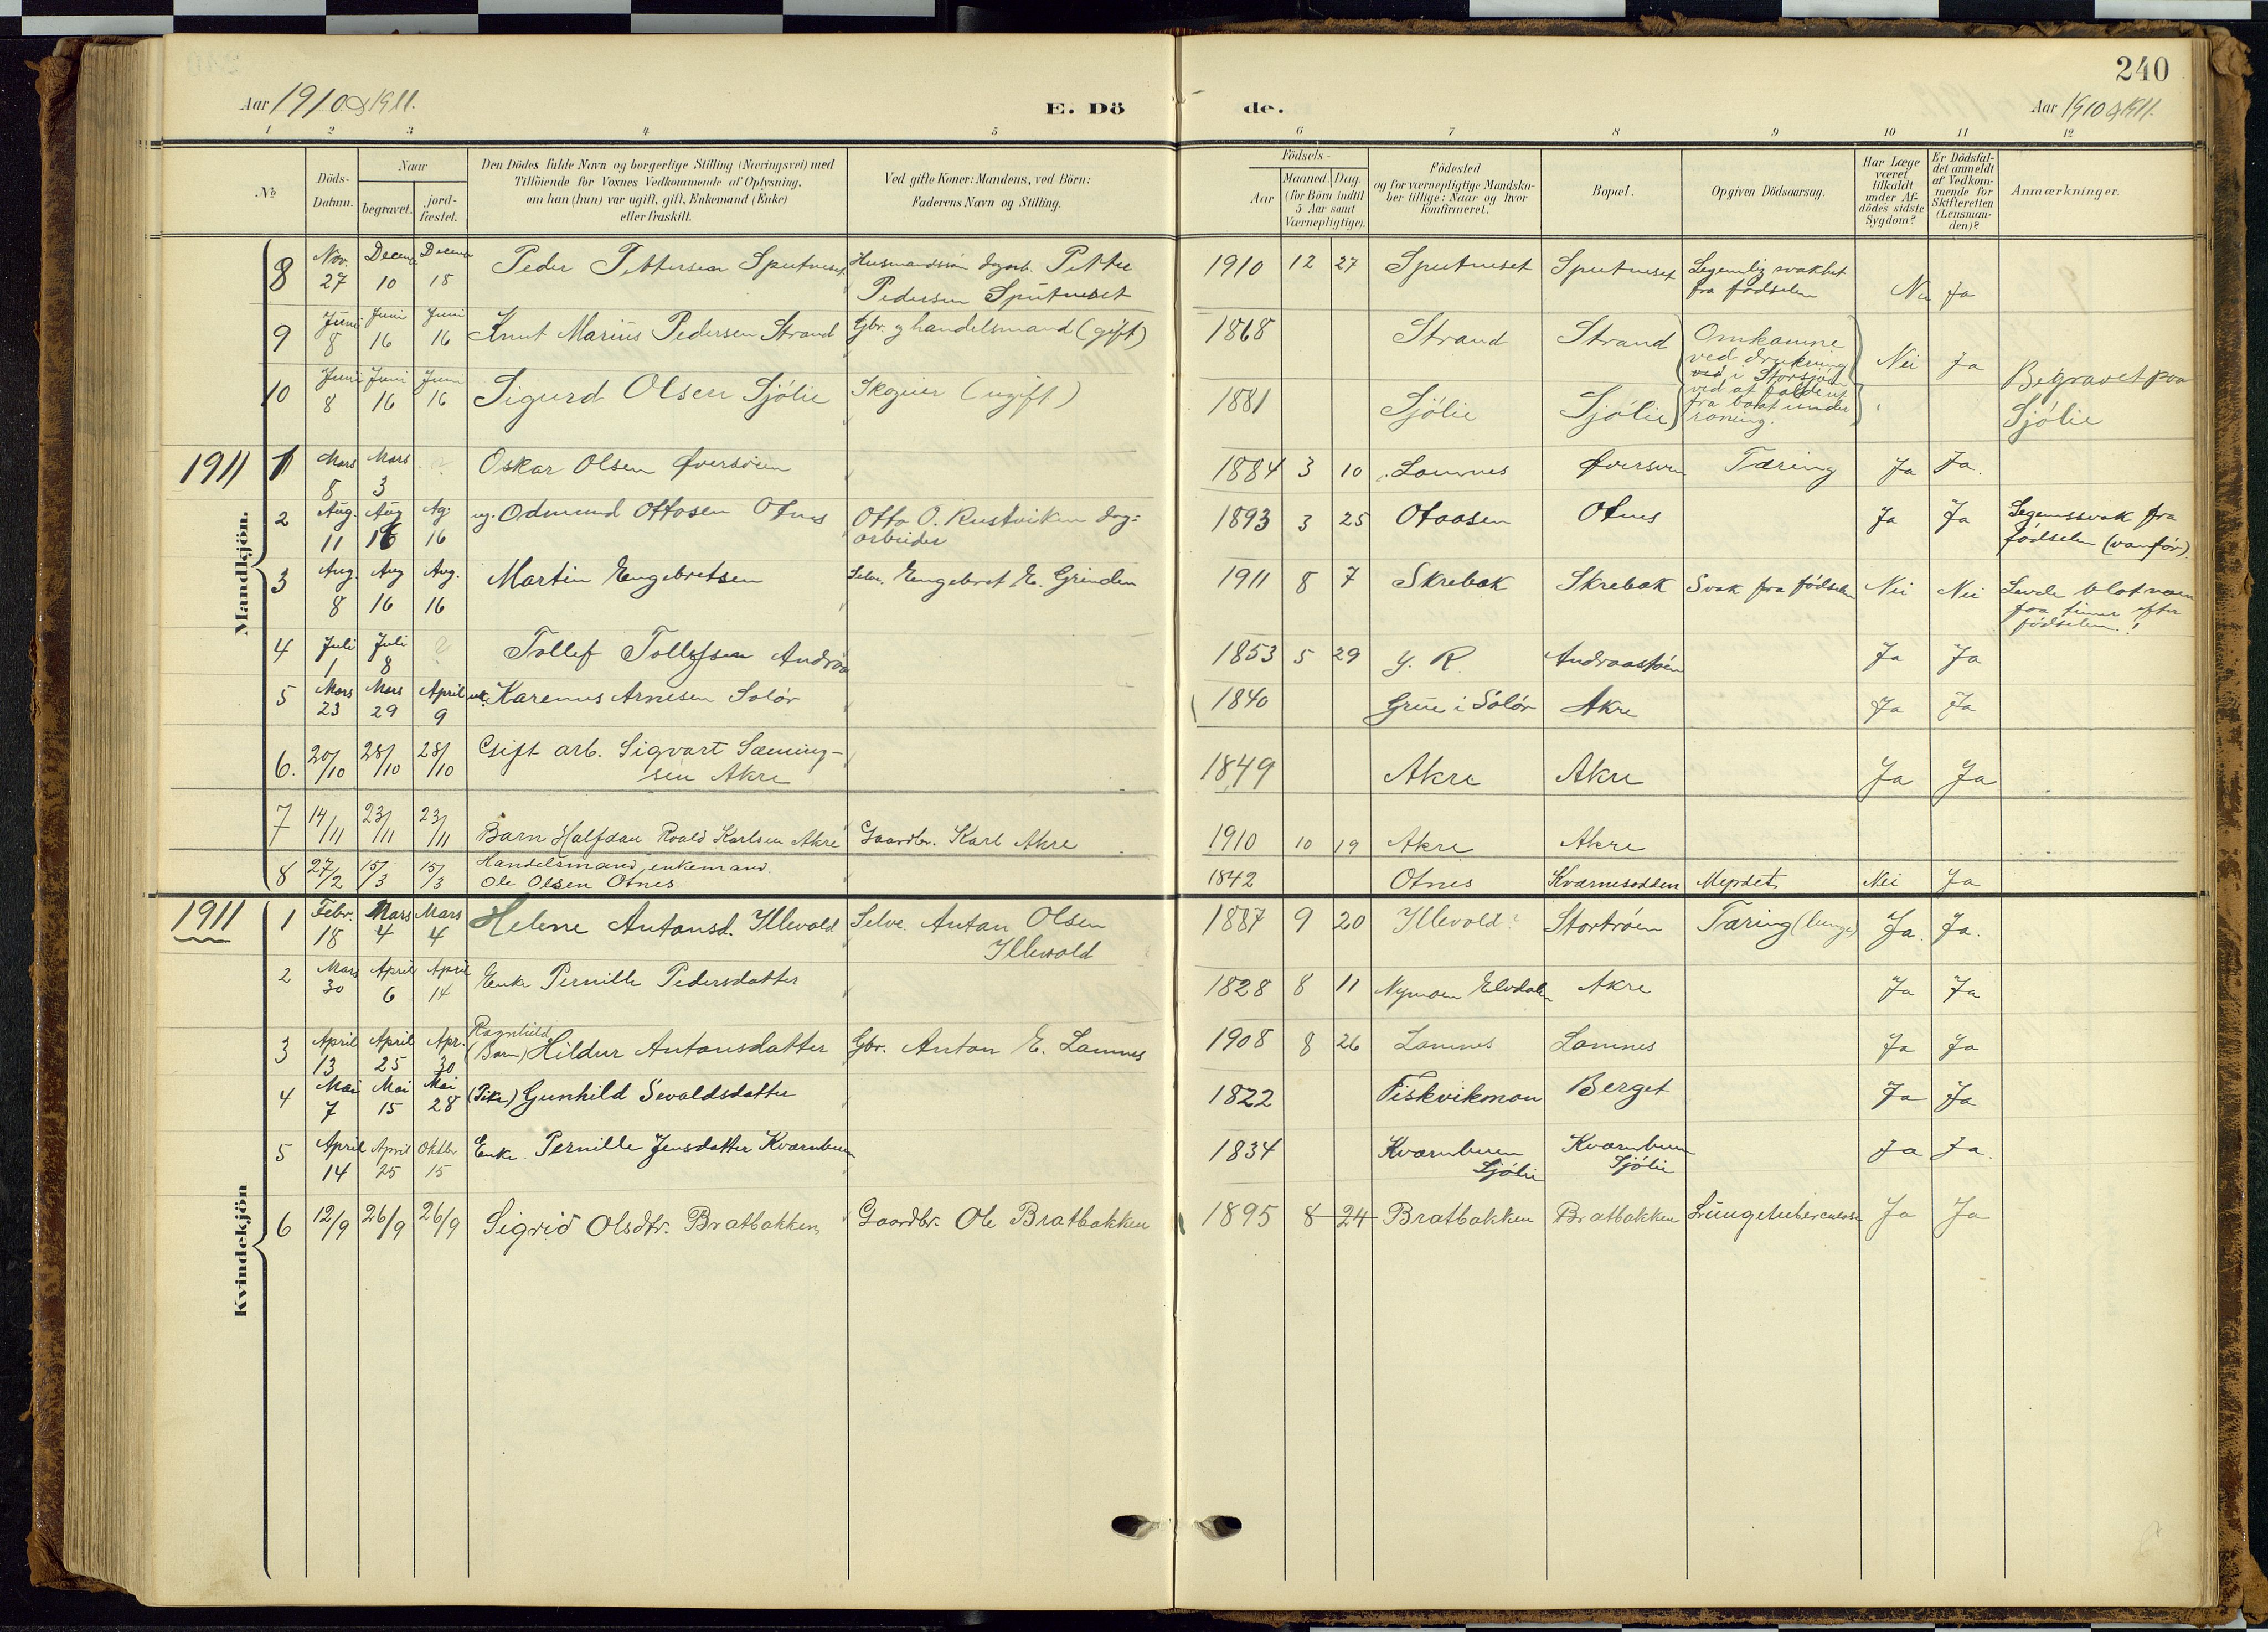 240
Aar 1910 & 1911.
E. Dö
de.
Aar 1910 & 1911.
1 2 3 4 5 6 7 8 9 10 11 12
No
Döds-Datum.
Naar
begravet.
jord-fæstet.
Den Dödes fulde Navn og borgerlige Stilling (Næringsvei) med
Tilföiende for Voxnes Vedkommende af Oplysning,
om han (hun) var ugift, gift, Enkemand (Enke)
eller fraskilt.
Ved gifte Koner: Mandens, ved Börn:
Faderens Navn og Stilling.
Födsels-
Aar
Maaned. Dag.
(for Börn indtil
5 Aar samt
Værnepligtige).
Födested
og for værnepligtige Mandska-
ber tillige: Naar og hvor
konfirmeret.
Bopæl.
Opgiven Dödsaarsag.
Har Læge
været
tilkaldt
under Af-
dödes sidste
Sygdom?
Er Dödsfal-
det anmeldt
af Vedkom-
mende for
Skifteretten
(Lensman-
den)?
Anmærkninger.
Mandkjön.
8 Nov. 27 Decem 10 Decem 18 Peder Pettersen Sputneset Husmandssön dagarb. Petter Pedersen Sputneset 1910 12 27 Sputneset Sputneset Legemlig svakhet fra fødselen Nei Ja
9 Juni 8 Juni 16 Juni 16 Knut Marius Pedersen Strand Gbr. og handelsmand (gift) 1868 Strand Strand Omkomne ved drukning ved i Storsjøen ved at falde ut fra baat under roning. Nei Ja
10 Juni 8 Juni 16 Juni 16 Sigurd Olsen Sjölie Skogeier (ugift) 1881 Sjölie Sjölie Begravet paa Sjölie
1911 1 Mars 8 Mars 3 Oskar Olsen Øversöen 1884 3 10 Lomnes Øversøen Tæring Ja Ja.
2 Aug. 11 Aug 16 Ag. 16 ug. Odmund Ottosen Otnes Otto O. Rustviken dag=arbeider 1893 3 25 Otaasen Otnes Ja Ja Legemssvak fra fødselen (vanför).
3 Aug. 8 Aug 16 Aug. 16 Martin Engebretsen Selve. Engebret E. Grinden 1911 8 7 Skrebak Skrebak Svak fra fødselen Nei Nei Levde blot noen faa timer efter fødselen!
4 Juli 1 Juli 8 ? Tollef Tollefsen Andraa 1853 5 29 Y. R. Andraastöen Ja Ja
5 Mars 23 Mars 29 April 9 Karenus Arnesen Solör 1840 Grue i Solör Akre Ja Ja
6. 20/10 28/10 28/10 Gift arb. Sigvart Sæming-sen Akre 1849 Akre Akre Ja Ja
7 14/11 23/11 23/11 Barn Halfdan Roald Karlsen Akre Gaardbr. Karl Akre 1910 10 19 Akre Akre
8 27/2 15/3 15/3 Handelsmand, enkemand. Ole Olsen Otnes 1842 Otnes Kværnesodden Nei Ja
Kvindekjön
1911 1 Febr. 18 Mars 4 Mars 4 Helene Antonsd. Illevold Selve. Anton Olsen Illevold 1887 9 20 Illevold? Stortröen Tæring (lunge) Ja. Ja.
2 Mars 30 April 6 April 14 Enke Pernille Pedersdatter 1828 8 11 Nymoen Elvdalen Akre Ja Ja
3 April 13 April 25 Apr. 30 Ragnhild (Barn) Hildur Antonsdatter Gbr. Anton E. Lomnes 1908 8 26 Lomnes Lomnes Ja Ja
4 Mai 7 Mai 15 Mai 28 (Pike) Gunhild Sevaldsdatter 1822 Fiskvikmoen Berget Ja Ja
5 April 14 April 25 Oktbr 15 Enke. Pernille Jensdatter Kværnbuen 1834 Kværnbuen Sjölie Kværnbuen Sjölie Ja Ja.
6 12/9 26/9 26/9 Sigrid Olsdtr. Bratbakken Gaardbr. Ole Bratbakken 1895 8 24 Bratbakken Bratbakken Lungetuberculose Ja Ja